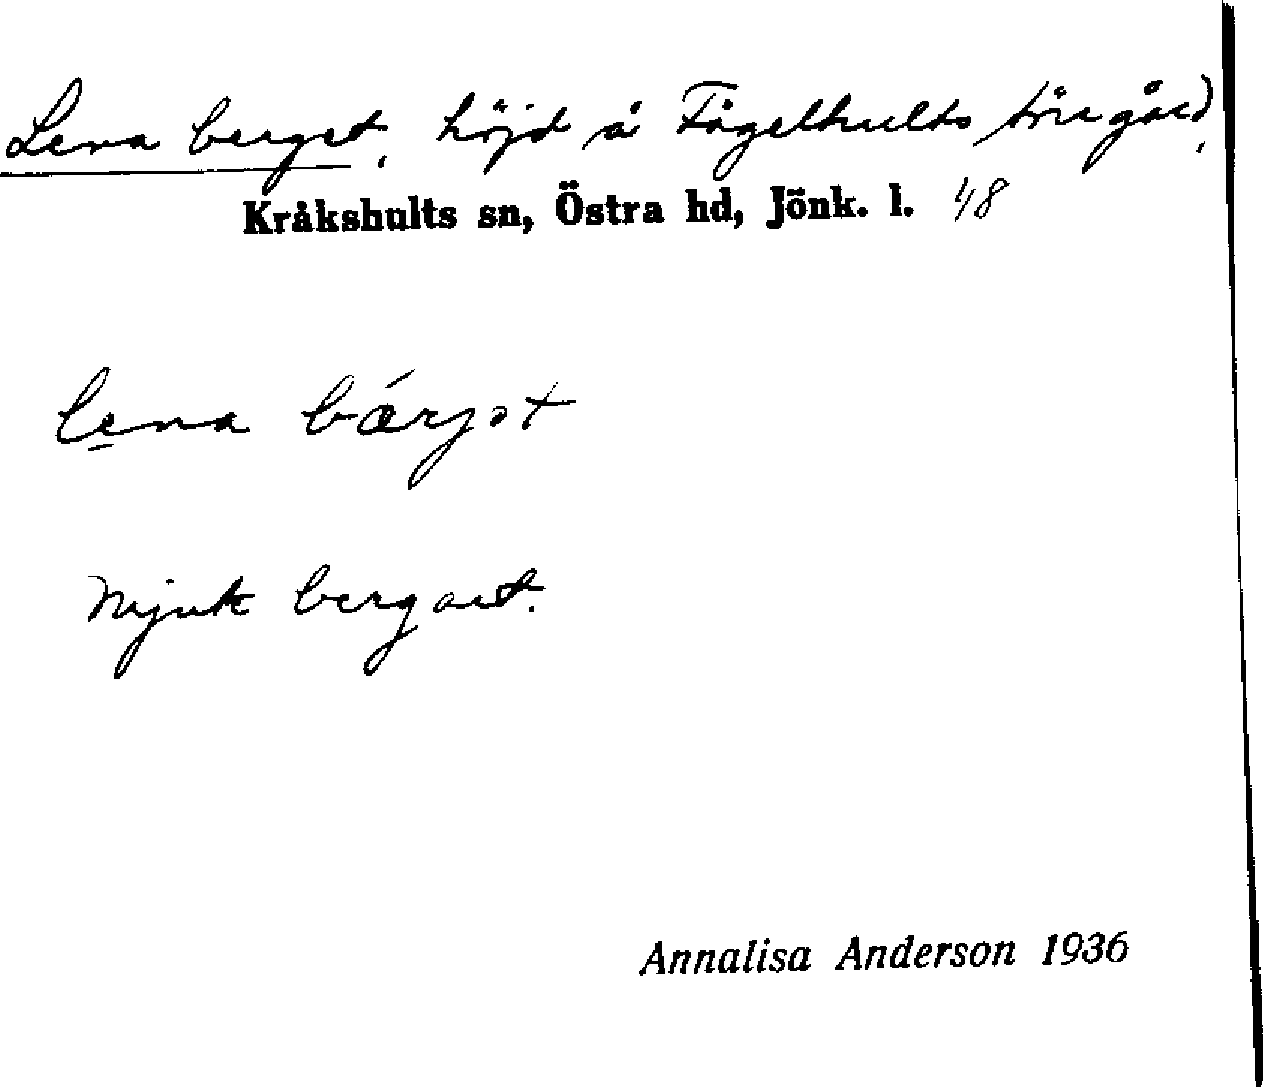 Lena berget, höjd å Fågelhults
Kråkshults sn, Östra hd, Jönk. l. 1/8
lena bǽrjət
Mjuk bergart.
Annalisa Anderson 1936